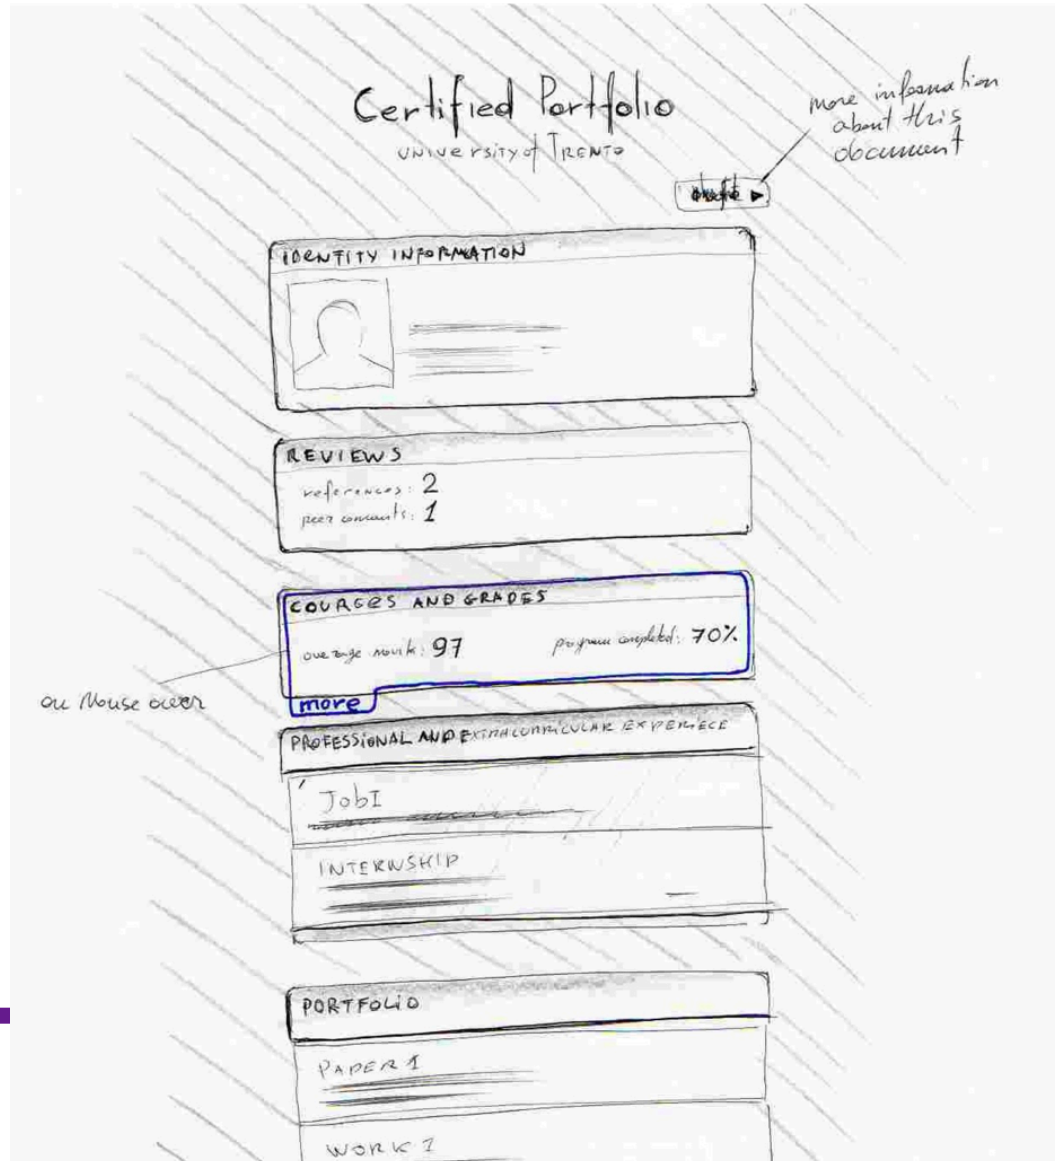 Certified Portfolio
University of Trento
more information
about this
document
IDENTITY INFORMATION
REVIEWS
references: 2
peer comments: 1
COURSES AND GRADES
average mark: 97
program completed: 70%
on Mouse over
more
PROFESSIONAL AND EXTRACURRICULAR EXPERIECE
Job1
INTERNSHIP
PORTFOLIO
PAPER 1
WORK 1